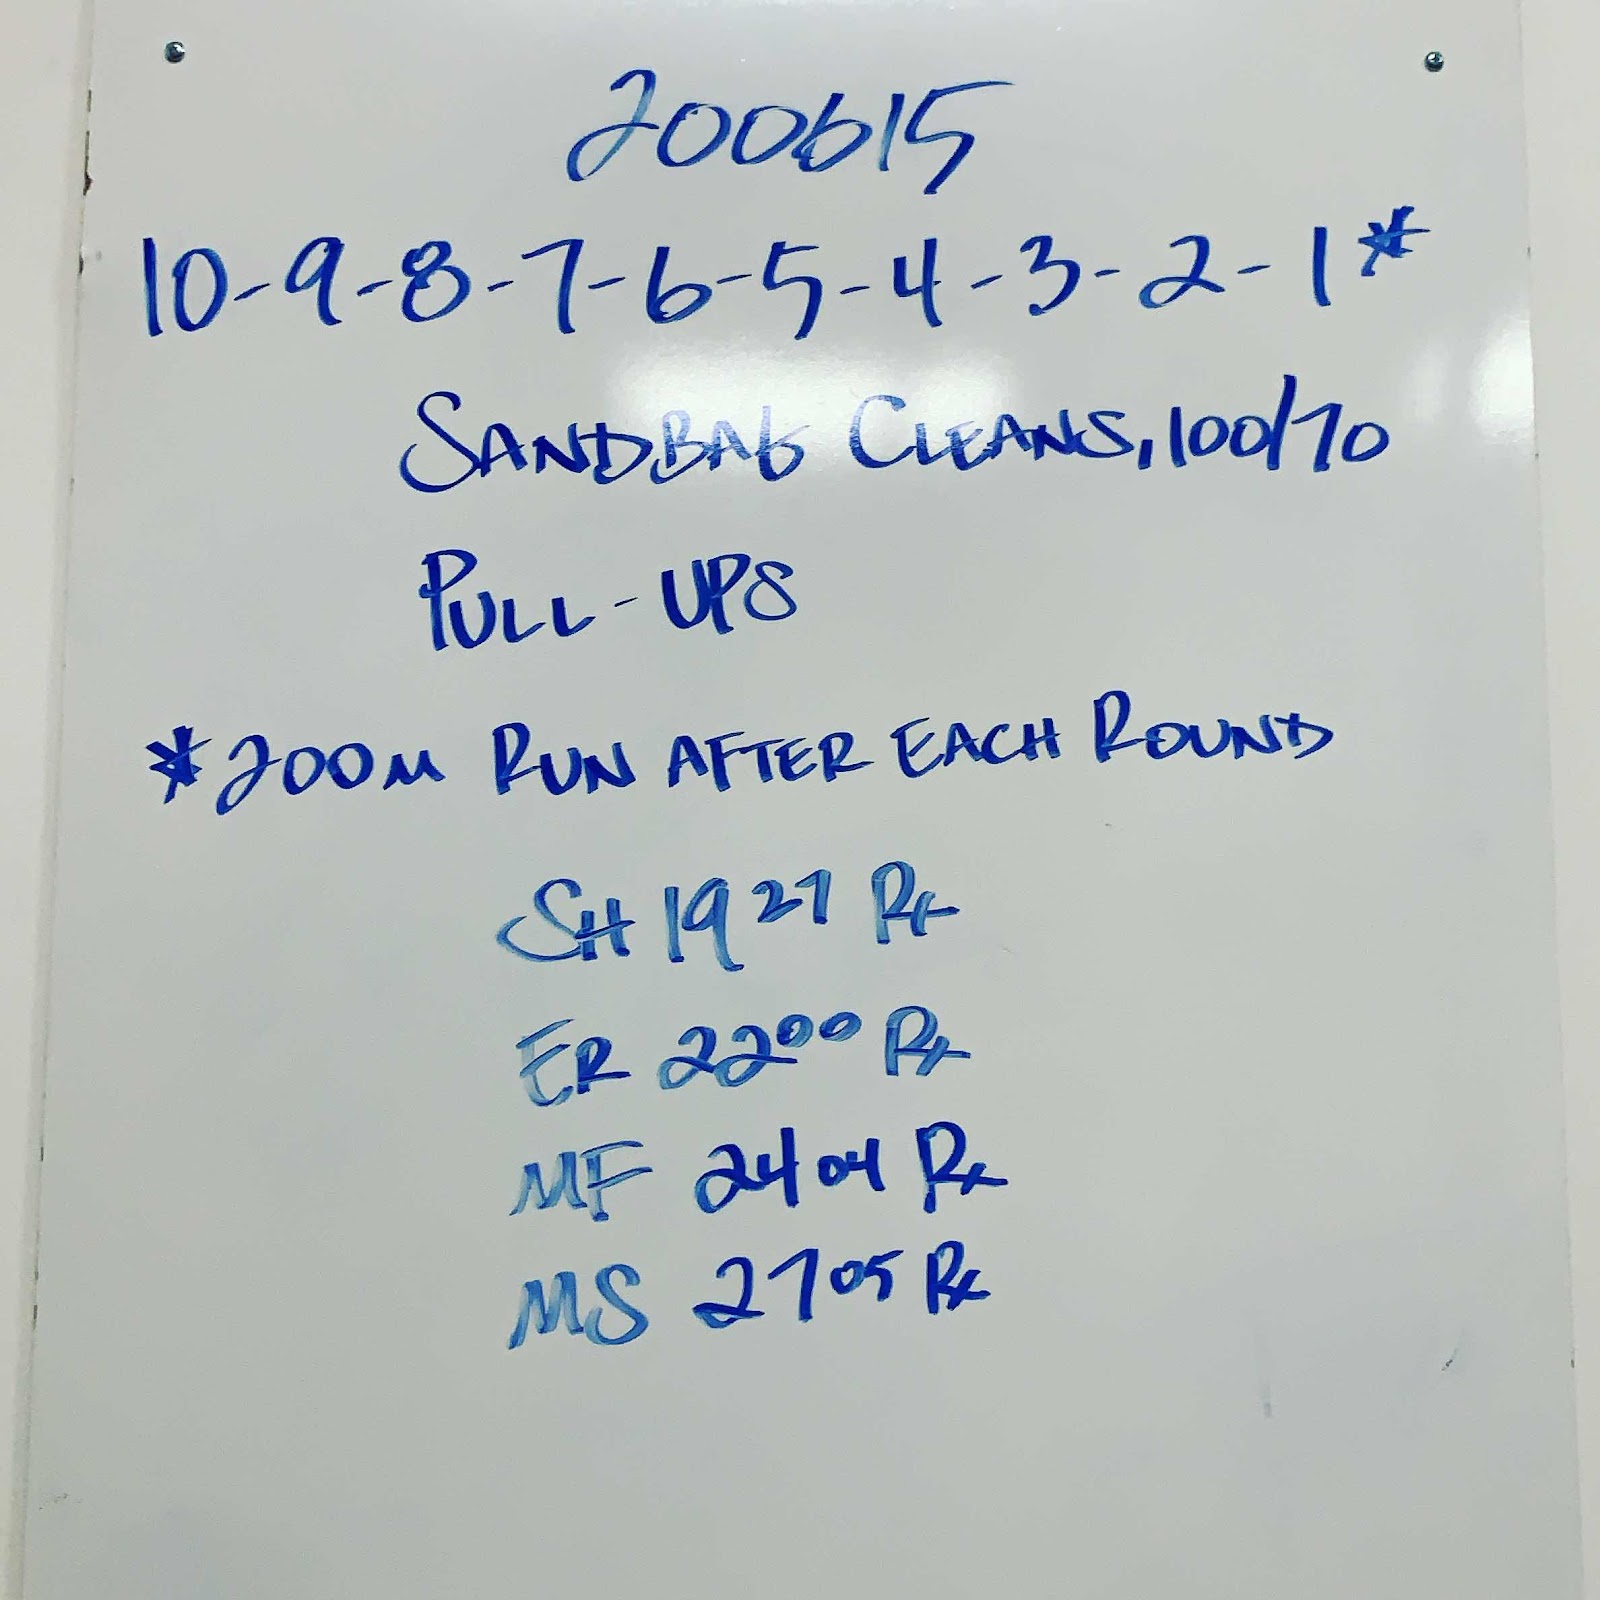 200615
10-9-8-7-6-5-4-3-2-1*
SANDBAG CLEANS, 100/70
PULL-UPS
*200M RUN AFTER EACH ROUND
SH 19 27 Rx
ER 22 00 Rx
MF 24 04 Rx
MS 27 05 Rx